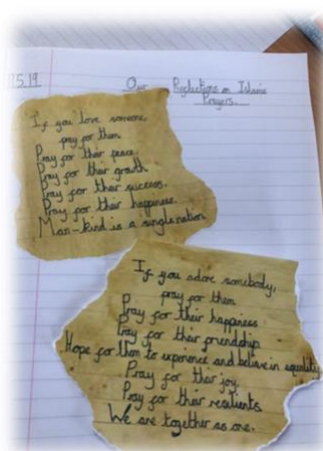 15.19
Our Reflections on Islamic
Prayers.
If you love someone,
pray for them.
Pray for their peace.
Pray for their growth
Pray for their success.
Pray for their happiness.
Man-kind is a single nation
If you adore somebody,
pray for them
Pray for their happiness
Pray for their friendship.
Hope for them to experience and believe in equality
Pray for their joy.
Pray for their resilients.
We are together as one.